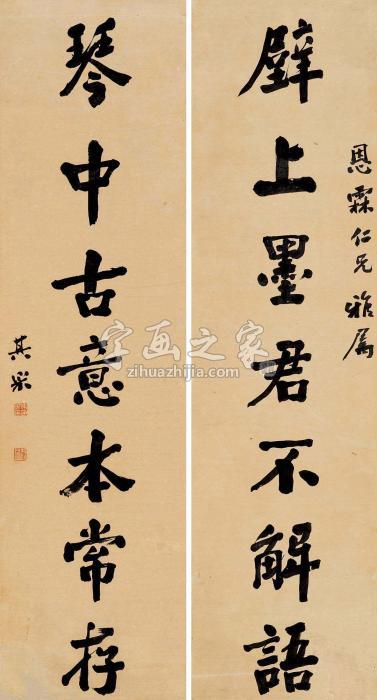 恩霖仁兄 雅属
壁上墨君不解語
琴中古意本常存
其采
字画之家
zihuazhijia.com